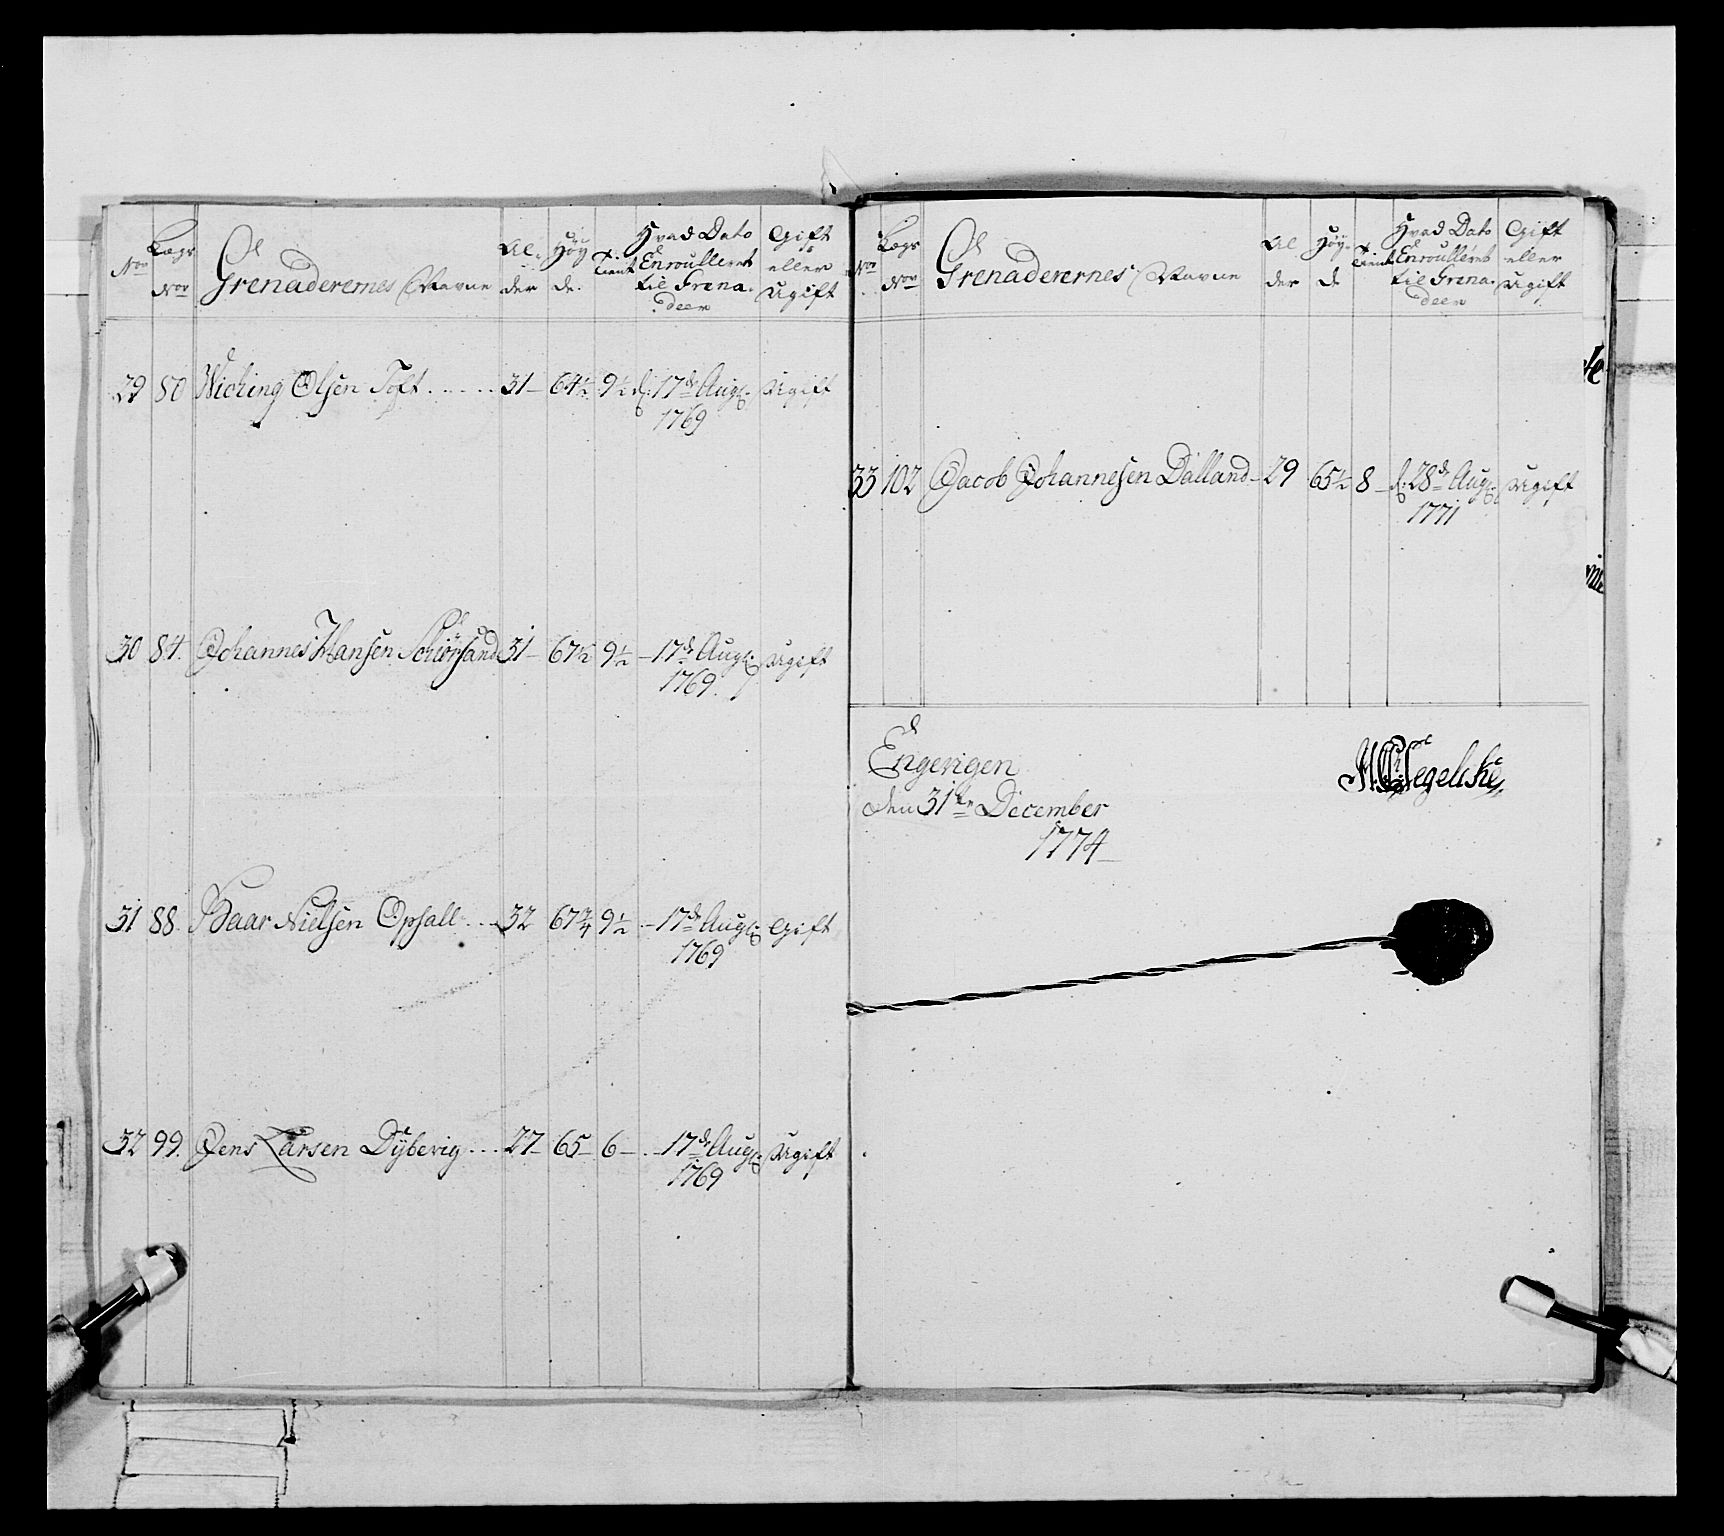 Nor Lægs Nor Grenaderernes Navne Alder Høyde Tient Hvad Dato Enroulleret til Grenadeer Gift eller Ugift
29 80 Wiching Olsen Toft 31 64½ 9½ d. 17de Aug. 1769 Ugift
30 84. Johannes Hansen 31 67½ 9½ 17de Aug. 1769. Ugift
31 88. Baar Nielsen Opsall 32 67¾ 9½ 17de Aug. 1769 Gift
32 99. Jens Larsen Dyberig 27 65 6 17de Aug. 1769 Ugift
Nor Lægs Nor Grenaderernes Navne Alder Høyde Tient Hvad Dato Enroulleret til Grenadeer Gift eller Ugift
33 102 Jacob Johannesen Dalland 29 65½ 8 d. 28de Aug. 1771 Ugift
Engerigen
den 31te December
1774